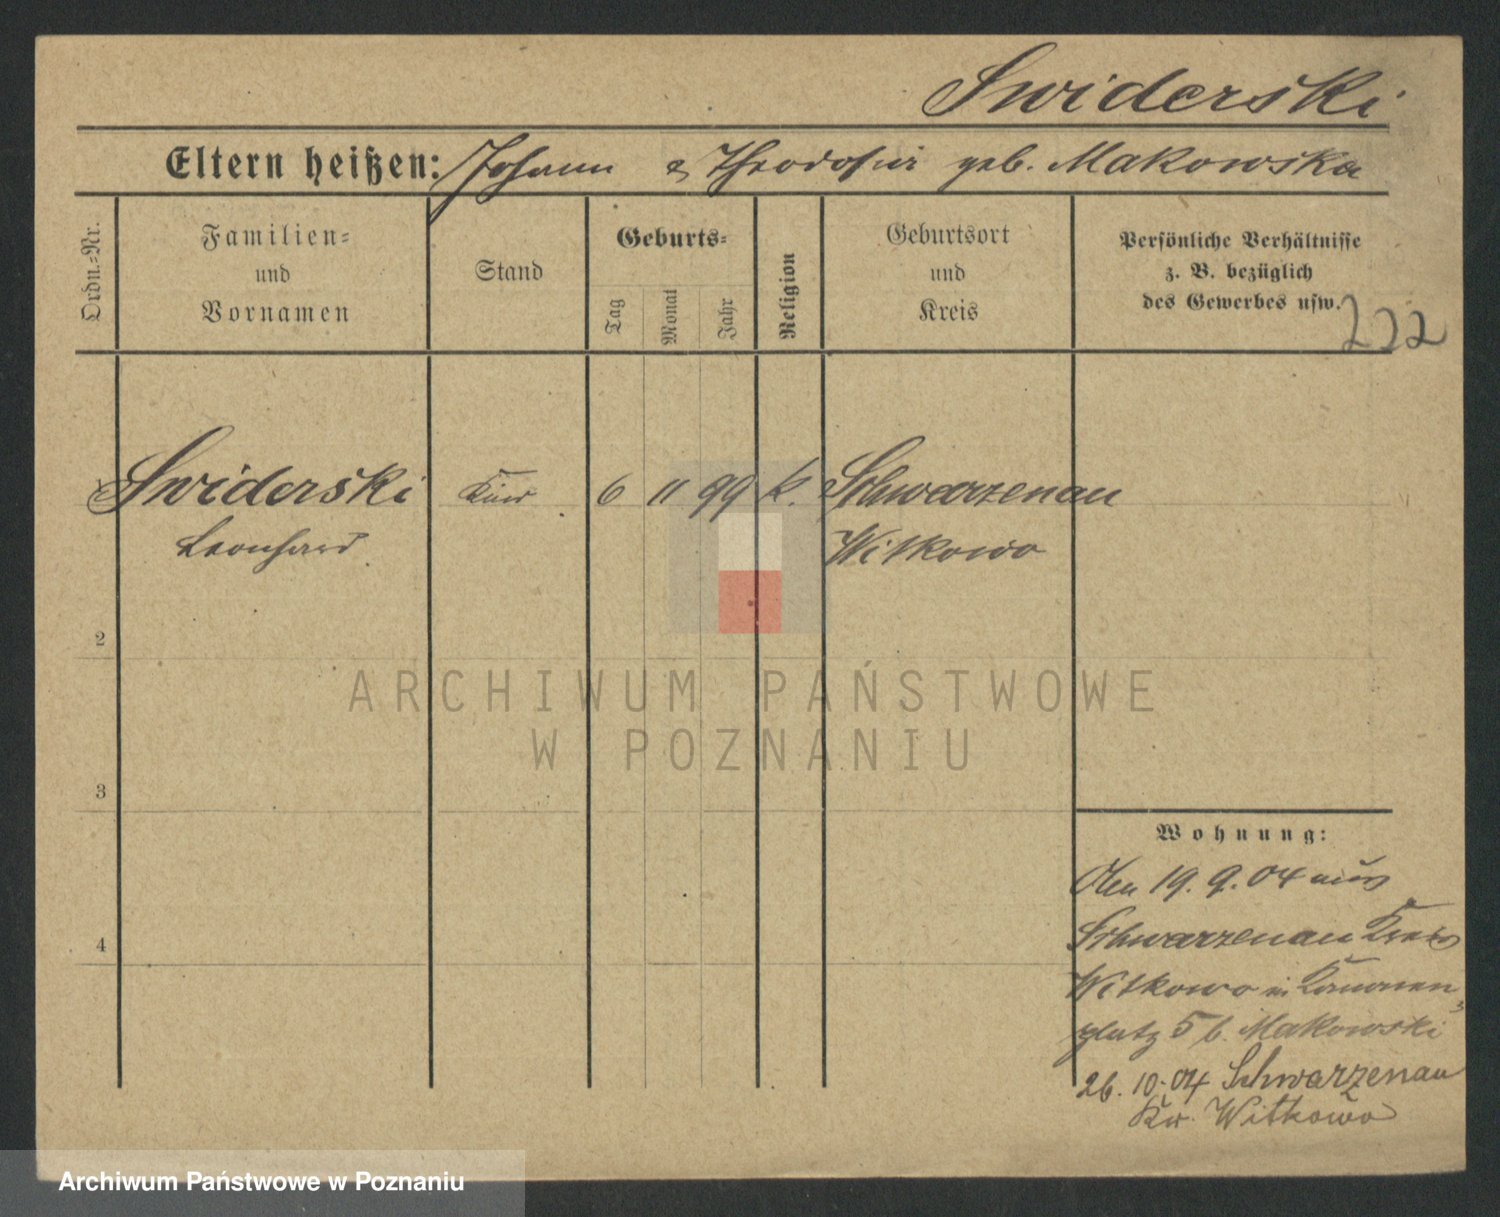 Swiderski
Eltern heißen: Johann & Theodosia geb. Makowska
Ordn.-Nr.
Familien-
und
Vornamen
Stand
Geburts-
Tag
Monat
Jahr
Religion
Geburtsort
und
Kreis
Persönliche Verhältnisse
z. B. bezüglich
des Gewerbes usw.
222
Swiderski
Leonhard
6
11
99
k.
Schwarzenau
Witkowo
2
3
4
Wohnung:
Den 19. 9. 04 aus
Schwarzenau Kreis
Witkowo in Kanonen
platz 5 b. Makowski
26. 10. 04 Schwarzenau
Kr. Witkowo
ARCHIWUM PAŃSTWOWE
W POZNANIU
Archiwum Państwowe w Poznaniu